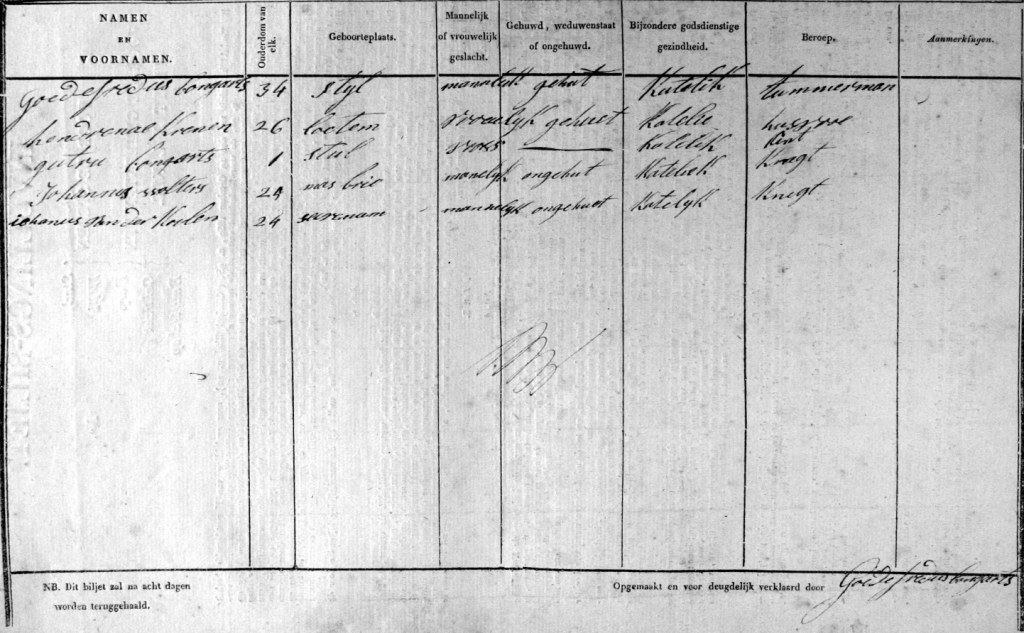 NAMEN EN VOORNAMEN. Ouderdom van elk. Geboorteplaats. Mannelijk of vrouwelijk geslacht. Gehuwd, weduwenstaat of ongehuwd. Bijzondere godsdienstige gezindheid. Beroep. Aanmerkingen.
Goedefredus bongarts 34 styl manelyk gehut Katelik tummerman
hendrenae Krenen 26 loetem gehuet Katelie
gutru bongarts 1 stul vrous Katelik Kint
Johannes wolters 24 mas brie manelyk ongehut Kateliek Knegt
iohanus van der Koelen 24 seevenam mannelyk ongehuet Katelyk Knegt
NB. Dit biljet zal na acht dagen worden teruggehaald.
Opgemaakt en voor deugdelijk verklaard door Goedefredus bongarts